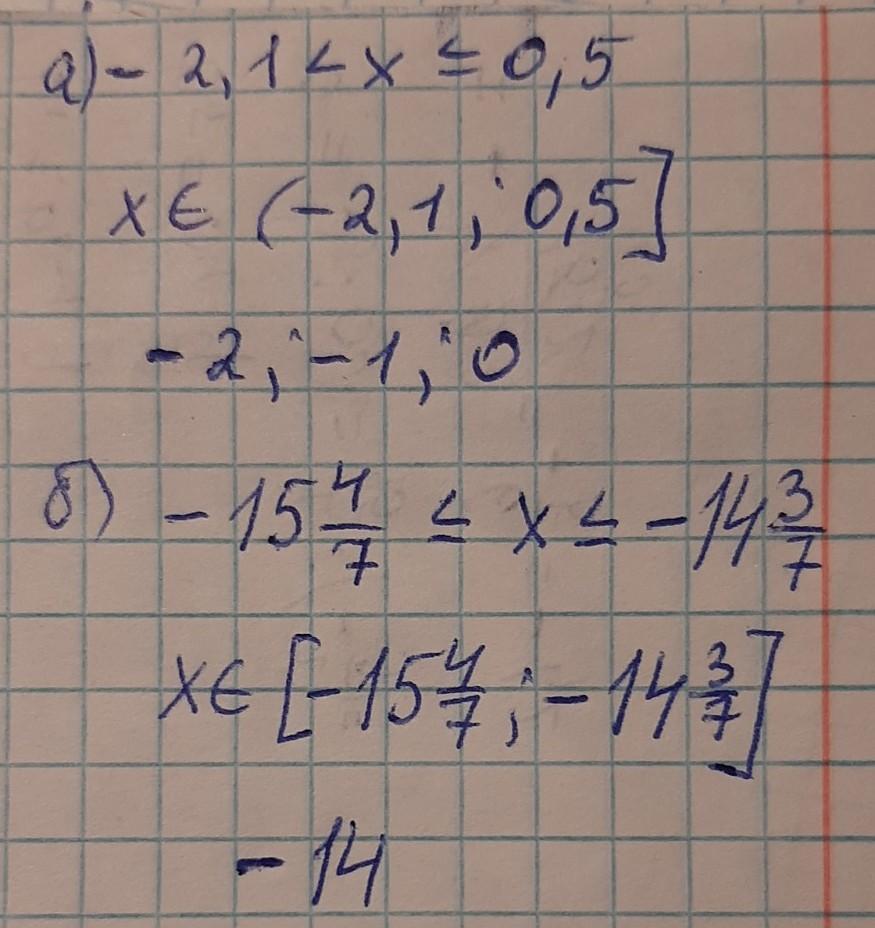 а) - 2,1 < x ≤ 0,5
x ∈ (-2,1; 0,5]
-2; -1; 0
б) -15 4/7 ≤ x ≤ -14 3/7
x ∈ [-15 4/7; -14 3/7]
-14